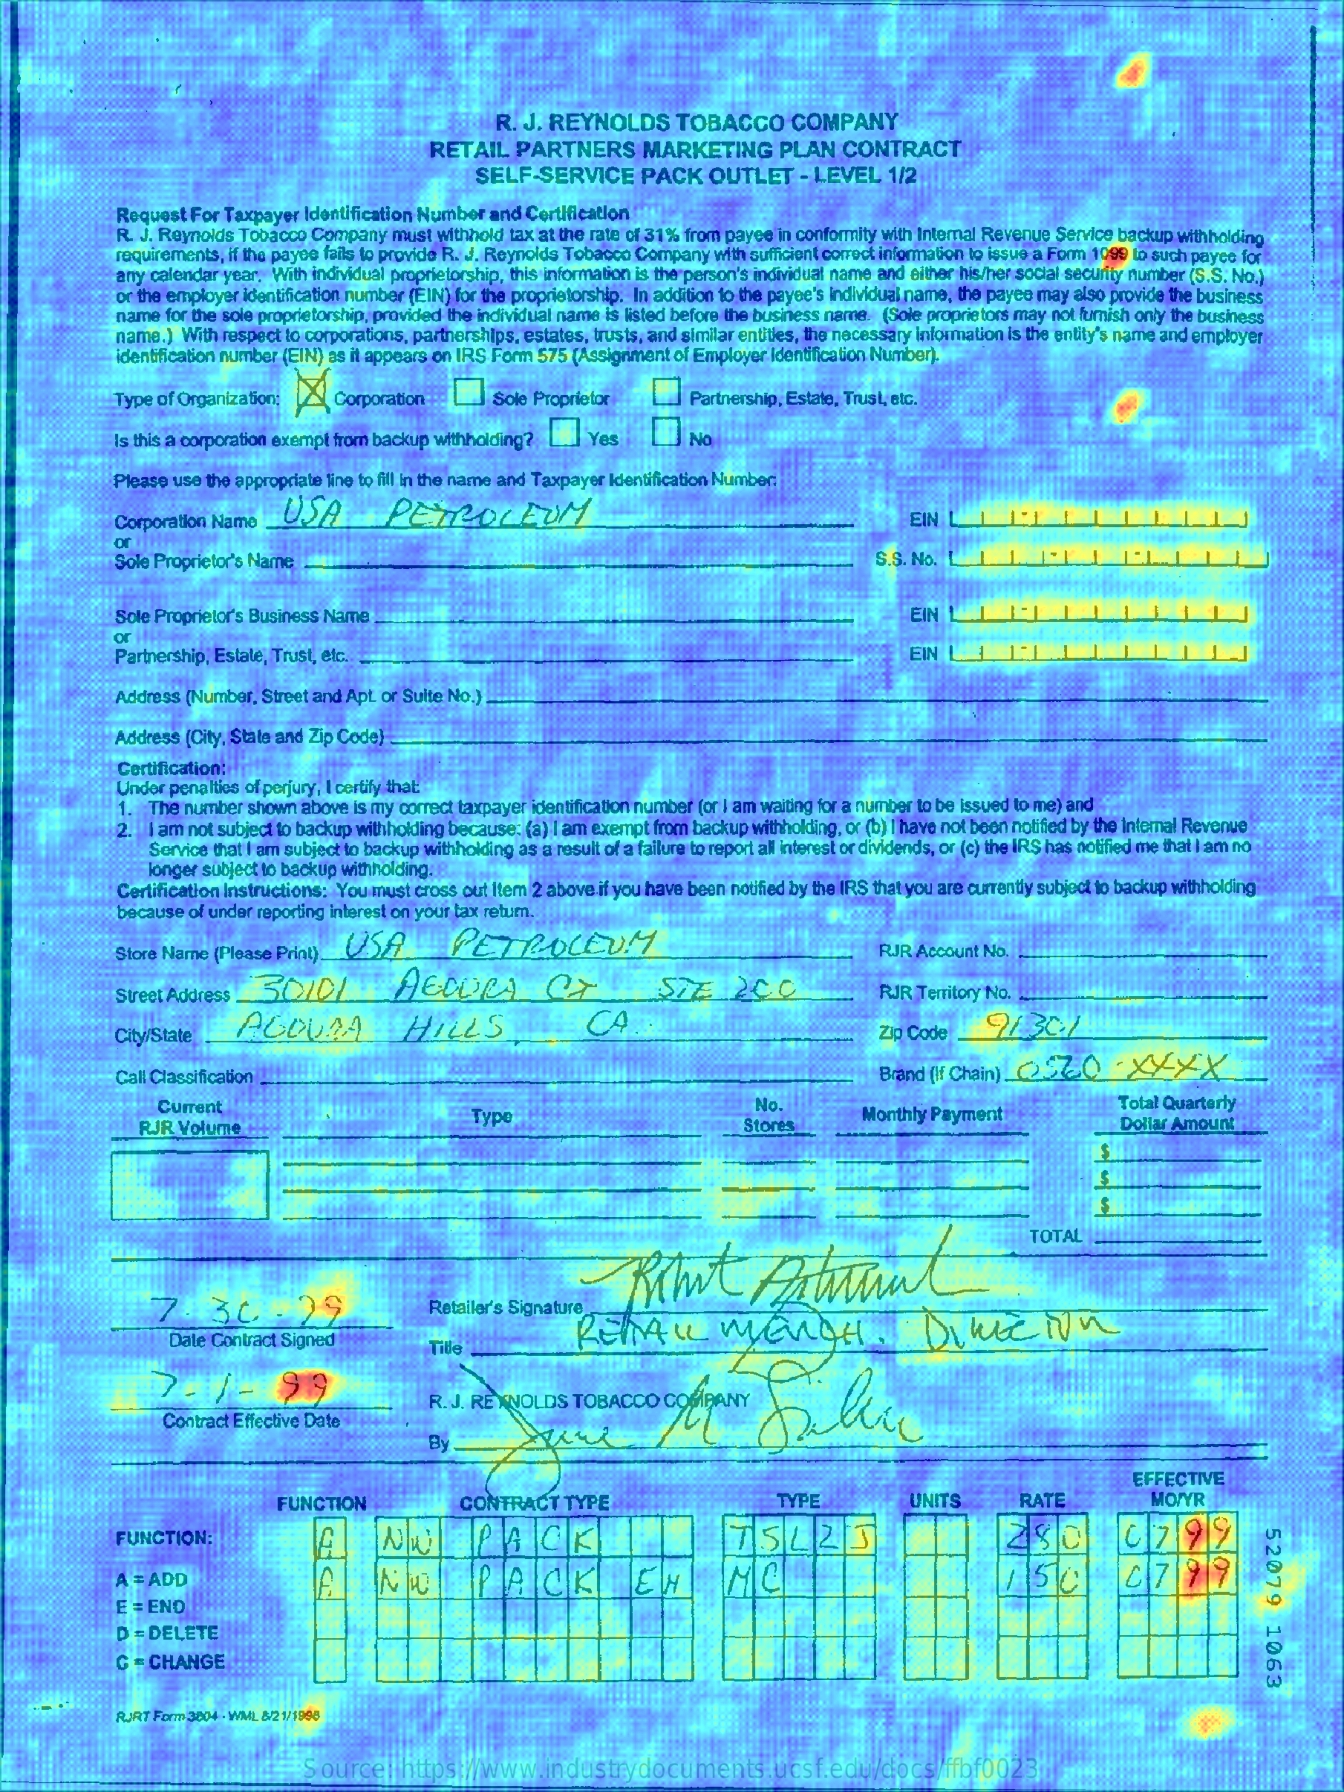 R. J. REYNOLDS TOBACCO COMPANY
RETAIL PARTNERS MARKETING PLAN CONTRACT
SELF-SERVICE PACK OUTLET - LEVEL 1/2
Request For Taxpayer Identification Number and Certification
R. J. Reynolds Tobacco Company must withhold tax at the rate of 31% from payee in conformity with Internal Revenue Service backup withholding
requirements, if the payee fails to provide R. J. Reynolds Tobacco Company with sufficient correct information to issue a Form 1099 to such payee for
any calendar year. With individual proprietorship, this information is the person's individual name and either his/her social security number (S.S. No.)
or the employer identification number (EIN) for the proprietorship. In addition to the payee's individual name, the payee may also provide the business
name for the sole proprietorship, provided the individual name is listed before the business name. (Sole proprietors may not furnish only the business
name.) With respect to corporations, partnerships, estates, trusts, and similar entities, the necessary information is the entity's name and employer
identification number (EIN) as it appears on IRS Form 575 (Assignment of Employer Identification Number).
Type of Organization: X Corporation Sole Proprietor Partnership, Estate, Trust, etc.
Is this a corporation exempt from backup withholding? Yes No
Please use the appropriate line to fill in the name and Taxpayer Identification Number:
Corporation Name USA PETROLEUM EIN
or
Sole Proprietor's Name S.S. No.
Sole Proprietor's Business Name EIN
or
Partnership, Estate, Trust, etc. EIN
Address (Number, Street and Apt. or Suite No.)
Address (City, State and Zip Code)
Certification:
Under penalties of perjury, I certify that:
1. The number shown above is my correct taxpayer identification number (or I am waiting for a number to be issued to me) and
2. I am not subject to backup withholding because: (a) I am exempt from backup withholding, or (b) I have not been notified by the Internal Revenue
Service that I am subject to backup withholding as a result of a failure to report all interest or dividends, or (c) the IRS has notified me that I am no
longer subject to backup withholding.
Certification Instructions: You must cross out Item 2 above if you have been notified by the IRS that you are currently subject to backup withholding
because of under reporting interest on your tax return.
Store Name (Please Print) USA PETROLEUM RJR Account No.
Street Address 30101 AGOURA CT STE 200 RJR Territory No.
City/State AGOURA HILLS, CA. Zip Code 91301
Call Classification Brand (If Chain) 0520-XXXX
Current RJR Volume Type No. Stores Monthly Payment Total Quarterly Dollar Amount
$
$
$
TOTAL
7-30-99 Retailer's Signature
Date Contract Signed Title RETAIL MERCH. DIRECTOR
7-1-99 R. J. REYNOLDS TOBACCO COMPANY
Contract Effective Date By
FUNCTION CONTRACT TYPE TYPE UNITS RATE EFFECTIVE MO/YR
FUNCTION: A NW PACK TSL2J 280 0799
A = ADD A NW PACK EH MC 150 0799
E = END
D = DELETE
C = CHANGE
52079 1063
RJRT Form 3804 - WML 8/21/1998
Source: https://www.industrydocuments.ucsf.edu/docs/ffbf0023